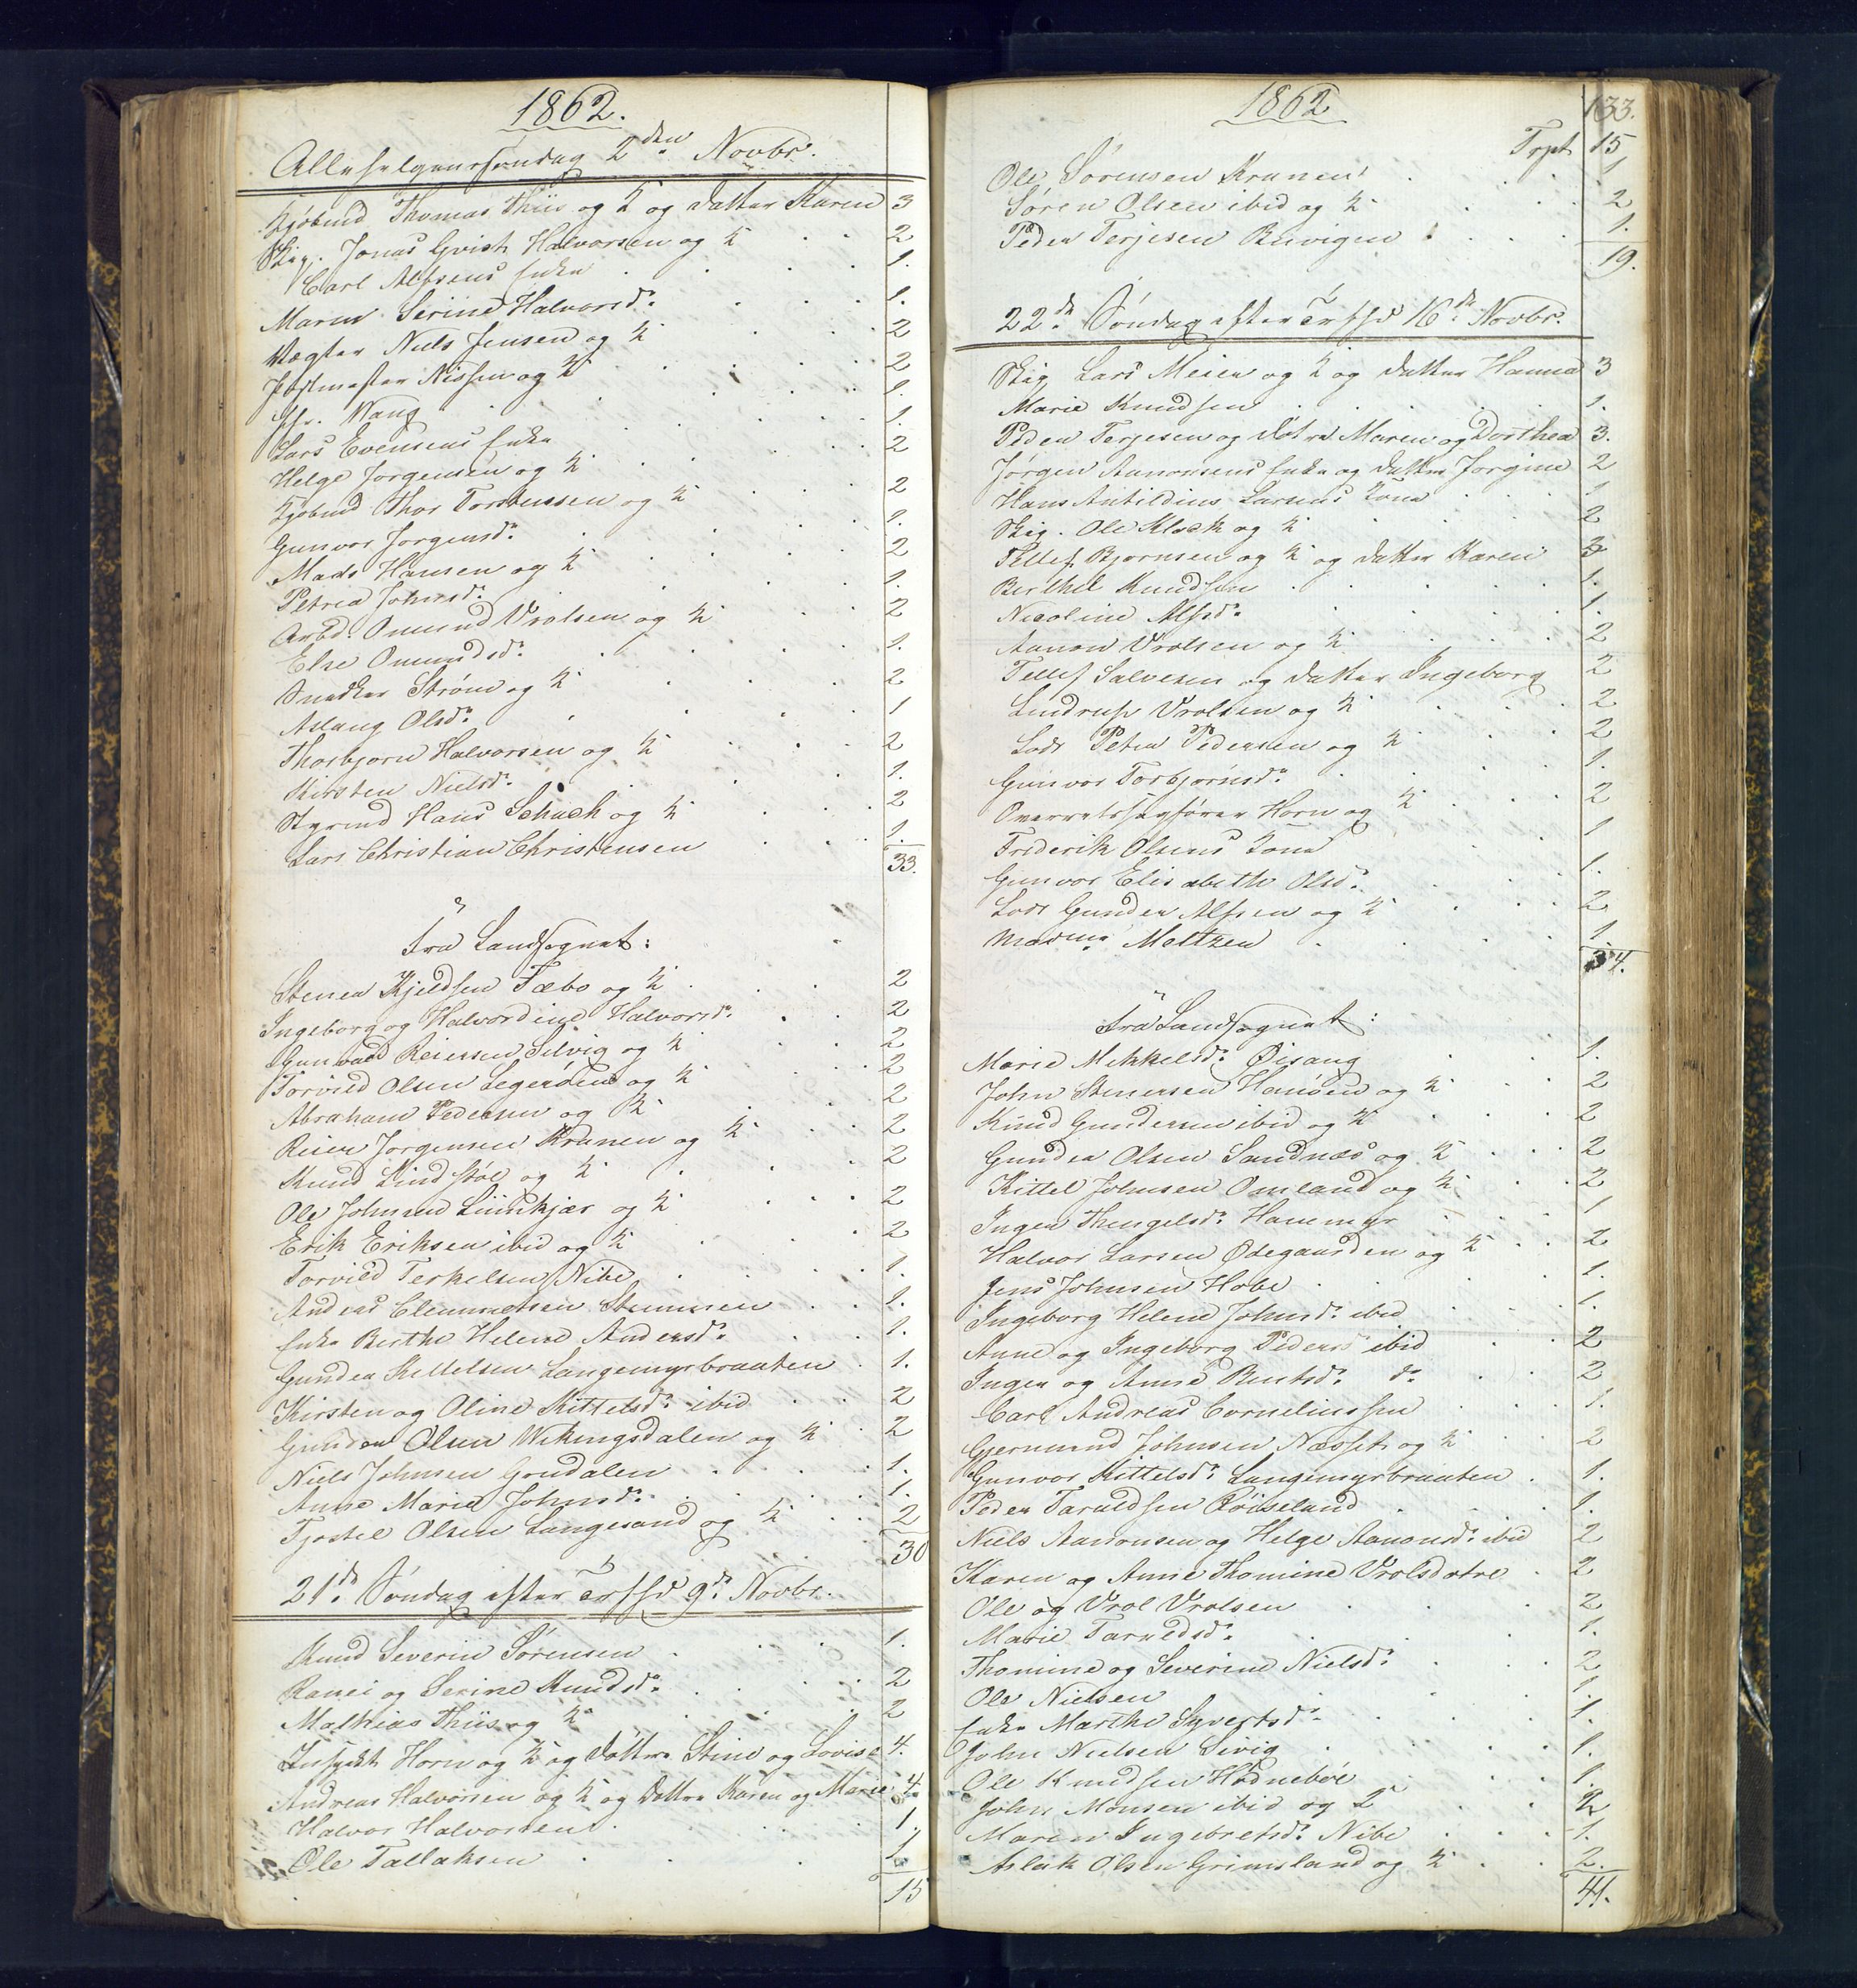 1862.
Allehelgenssøndag 2den Novbr.
Kjøbmd Thomas Thiis og K og datter Karen 3
Skip. Jonas Qvist Halvorsen og K 2
Carl Alfsens Enke 1.
Maren Serine Halvorsdr 1.
Vægter Niels Jensen og K 2
Postmester Nissen og K 2
Wang 1.
Lars Evensens Enke 1.
Helge Jørgensen og K 2
Kjøbmd Thor Torstenssen og K 2
Gunvor Jørgensdr 1.
Mads Hansen og K 2
Petrea Johnsdr 1.
Arbd. Omund Vrolsen og K 2
Else Omundsdr 1.
Snedker Strøm og K 2
Aslaug Olsdr 1
Thorbjørn Halvorsen og K 2
Kirsten Nielsdr 1.
Styrmd Hans Schach og K 2
Lars Christian Christensen 1.
33.
Fra Landsognet:
Stener Kjeldsen Tæbo og K 2
Ingeborg og Halvordine Halvorsdr 2
Gunvald Reiersen Silvig og K 2
Torvild Olsen og K 2
Abraham Pedersen og K 2
Reier Jørgensen Kranen og K 2
Knud Lindstøl og K 2
Ole Johnsen og K 2
Erik Eriksen ibid og K 2
Torvild Terkelsen Nibe 1.
Anders Clemmetsen 1.
Enke Berthe Helene Andersdr 1.
Gunder Kittelsen Langemyrbraaten 1.
Kirsten og Oline Kittelsdr ibid 2
Gunder Olsen Wikingsdalen og K 2
Niels Johnsen Grudalen 1.
Anne Marie Johnsdr 1.
Tjøstel Olsen Langesand og K 2
30
21de Søndag efter Trefsd 9de Novbr.
Knud Severin Sørensen 1.
Ranei og Serine Knudsdr 2
Mathias Thiis og K 2
Inspekt Horn og K og døttre Stine og Lovise 4.
Andreas Halvorsen og K og døttre Karen og Marie 4.
Halvor Halvorsen 1.
Ole Tallaksen 1
15
1862
133.
Trpt 15
Ole Sørensen Kranen 1
Søren Olsen ibid og K 2
Peder Terjesen Buvigen 1.
19.
22de Søndag efter Trefsd 16de Novbr.
Skip Lars Meier og K og datter Hanna 3
Marie Knudsen 1.
Peder Terjesen og døtre Maren og Dorthea 3.
Jørgen Aanonsens Enke og datter Jørgine 2
Hans Antildius Larsens Kone 1
Skip. Ole Klock og K 2
Tellef Bjørnsen og K og datter Karen 3
Berthel Knudsen 1.
Nicoline Alfsdr 1.
Aanon Vrolsen og K 2
Tellef Salvesen og datter Ingeborg 2
Lindrup Vrolsen og K 2
Lods Peter Pedersen og K 2
Gunvor Torbjørnsdr 1.
Overretssagfører Horn og K 2
Frederik Olsens Kone 1
Gunvor Elisabeth Olsdr 1.
Lods Gunder Alfsen og K 2
Madme Meltzen 1
34.
Fra Landsognet:
Marie Mikkelsdr Øisang 1.
John Stenersen Hanøen og K 2
Knud Gundersen ibid og K 2
Gunder Olsen Sandnæs og K 2
Kittel Johnsen Omland og K 2
Inger Thengelsdr Hammyr 1
Halvor Larsen Ødegaarden og K 2
Jens Johnsen Hobe 1.
Ingeborg Helene Johnsdr ibid 1.
Anne og Ingeborg Pedersd ibid 2
Inger og Anne Bentsdr do 2
Carl Andreas Corneliussen 1.
Gjermund Johnsen Næsset og K 2
Gunvor Kittelsdr Langemyrbraaten 1.
Peder Taraldsen Røiseland 1.
Niels Aanonsen og Helge Aanonsdr ibid 2
Karen og Anne Thomine Vrolsdøtre 2
Ole og Vrol Vrolsen 2
Marie Taraldsdr 1.
Thomine og Severine Nielsdr 2
Ole Nielsen 1.
Enke Marthe Syvertsdr 1.
John Nielsen Sivig 1.
Ole Knudsen Hødnebøe 1.
John Monsen ibid og K 2
Maren Ingebretsdr Nibe 1.
Aslak Olsen Grimsland og K 2.
41.